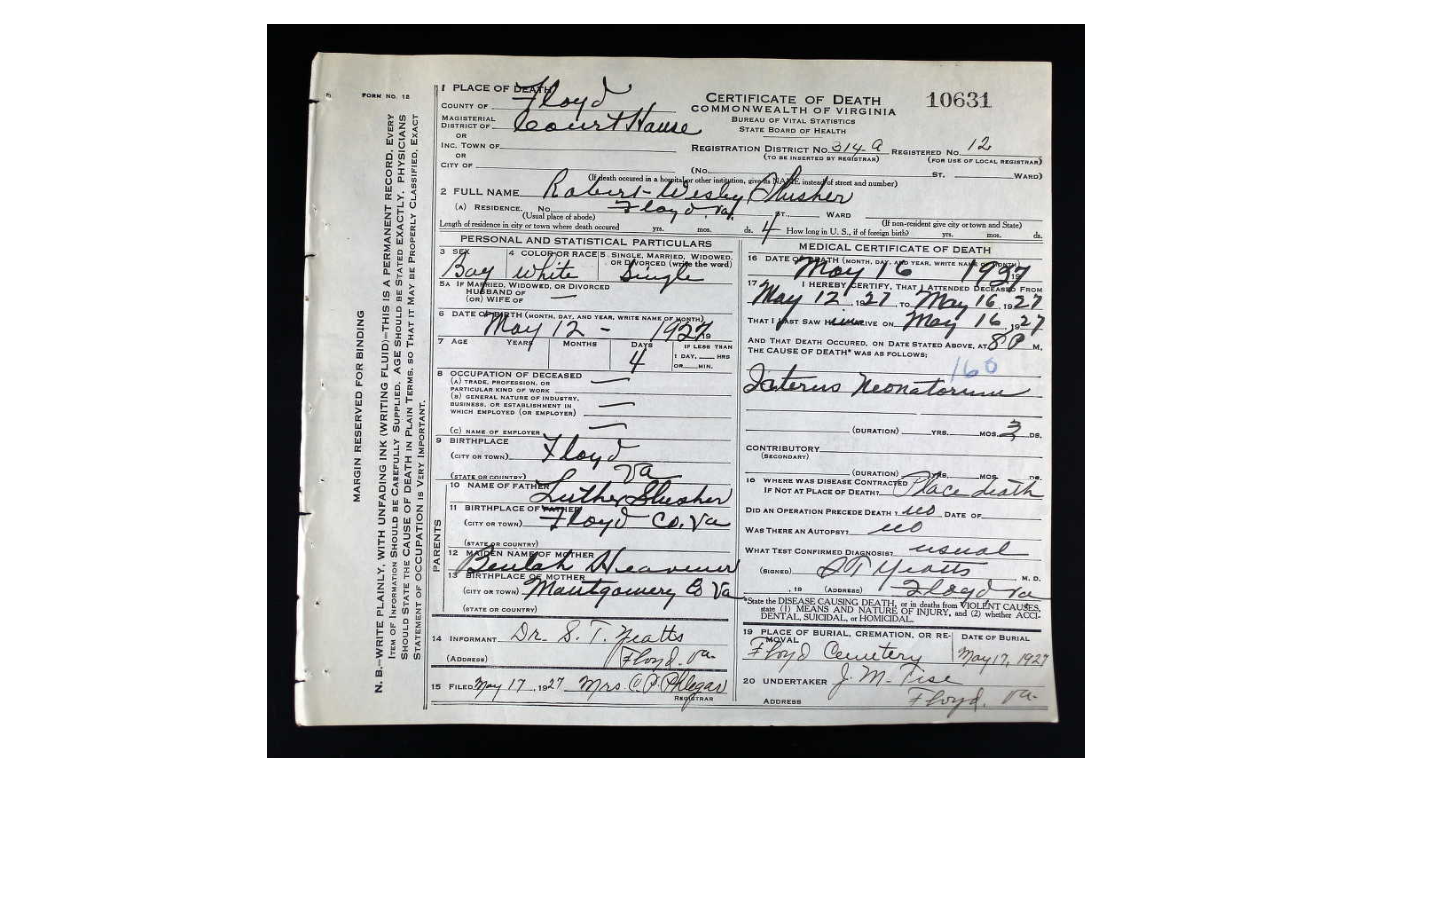 FORM NO. 12
MARGIN RESERVED FOR BINDING
N. B.—WRITE PLAINLY, WITH UNFADING INK (WRITING FLUID)—THIS IS A PERMANENT RECORD. EVERY
ITEM OF INFORMATION SHOULD BE CAREFULLY SUPPLIED. AGE SHOULD BE STATED EXACTLY. PHYSICIANS
SHOULD STATE THE CAUSE OF DEATH IN PLAIN TERMS, SO THAT IT MAY BE PROPERLY CLASSIFIED. EXACT
STATEMENT OF OCCUPATION IS VERY IMPORTANT.
1 PLACE OF DEATH
COUNTY OF Floyd
MAGISTERIAL DISTRICT OF Court House
OR
INC. TOWN OF
OR
CITY OF
CERTIFICATE OF DEATH
COMMONWEALTH OF VIRGINIA
BUREAU OF VITAL STATISTICS
STATE BOARD OF HEALTH
10631
REGISTRATION DISTRICT NO. 314.a REGISTERED NO. 12
(TO BE INSERTED BY REGISTRAR) (FOR USE OF LOCAL REGISTRAR)
(No. ST. WARD)
(If death occured in a hospital or other institution, give its NAME, instead of street and number)
2 FULL NAME Robert Wesley Slusher
(A) RESIDENCE. No. Floyd, Va. ST. WARD
(Usual place of abode) (If non-resident give city or town and State)
Length of residence in city or town where death occured yrs. mos. ds. 4 How long in U. S., if of foreign birth? yrs. mos. ds.
PERSONAL AND STATISTICAL PARTICULARS
3 SEX Boy
4 COLOR OR RACE White
5 SINGLE, MARRIED, WIDOWED, OR DIVORCED (write the word) Single
5A IF MARRIED, WIDOWED, OR DIVORCED
HUSBAND OF
(OR) WIFE OF —
6 DATE OF BIRTH (MONTH, DAY, AND YEAR, WRITE NAME OF MONTH)
May 12 - 1927
7 AGE YEARS MONTHS DAYS 4 IF LESS THAN
1 DAY, HRS
OR MIN.
8 OCCUPATION OF DECEASED
(A) TRADE, PROFESSION, OR
PARTICULAR KIND OF WORK —
(B) GENERAL NATURE OF INDUSTRY,
BUSINESS, OR ESTABLISHMENT IN
WHICH EMPLOYED (OR EMPLOYER) —
(C) NAME OF EMPLOYER —
9 BIRTHPLACE
(CITY OR TOWN) Floyd
(STATE OR COUNTRY) Va
PARENTS
10 NAME OF FATHER Luther Slusher
11 BIRTHPLACE OF FATHER
(CITY OR TOWN) Floyd Co. Va
(STATE OR COUNTRY)
12 MAIDEN NAME OF MOTHER
Beulah Heavener
13 BIRTHPLACE OF MOTHER
(CITY OR TOWN) Montgomery Co Va
(STATE OR COUNTRY)
14 INFORMANT Dr. S. T. Yeatts
(ADDRESS) Floyd. Va.
15 FILED May 17, 1927 Mrs. C. P. Phlegar
REGISTRAR
MEDICAL CERTIFICATE OF DEATH
16 DATE OF DEATH (MONTH, DAY, AND YEAR, WRITE NAME OF MONTH)
May 16 1927
17 I HEREBY CERTIFY, THAT I ATTENDED DECEASED FROM
May 12, 1927, TO May 16, 1927
THAT I LAST SAW him ALIVE ON May 16, 1927
AND THAT DEATH OCCURED, ON DATE STATED ABOVE, AT 8 P M.
THE CAUSE OF DEATH* WAS AS FOLLOWS:
160
Icterus Neonatorum
(DURATION) YRS. MOS. 3 DS.
CONTRIBUTORY
(SECONDARY)
(DURATION) YRS. MOS. DS.
18 WHERE WAS DISEASE CONTRACTED
IF NOT AT PLACE OF DEATH? Place death
DID AN OPERATION PRECEDE DEATH? no DATE OF
WAS THERE AN AUTOPSY? no
WHAT TEST CONFIRMED DIAGNOSIS? usual
(SIGNED) S T Yeatts M. D.
, 19 (ADDRESS) Floyd Va
*State the DISEASE CAUSING DEATH, or in deaths from VIOLENT CAUSES,
state (1) MEANS AND NATURE OF INJURY, and (2) whether ACCI-
DENTAL, SUICIDAL, or HOMICIDAL.
19 PLACE OF BURIAL, CREMATION, OR RE-
MOVAL DATE OF BURIAL
Floyd Cemetery May 17, 1927
20 UNDERTAKER J. M. Tise
ADDRESS Floyd. Va.